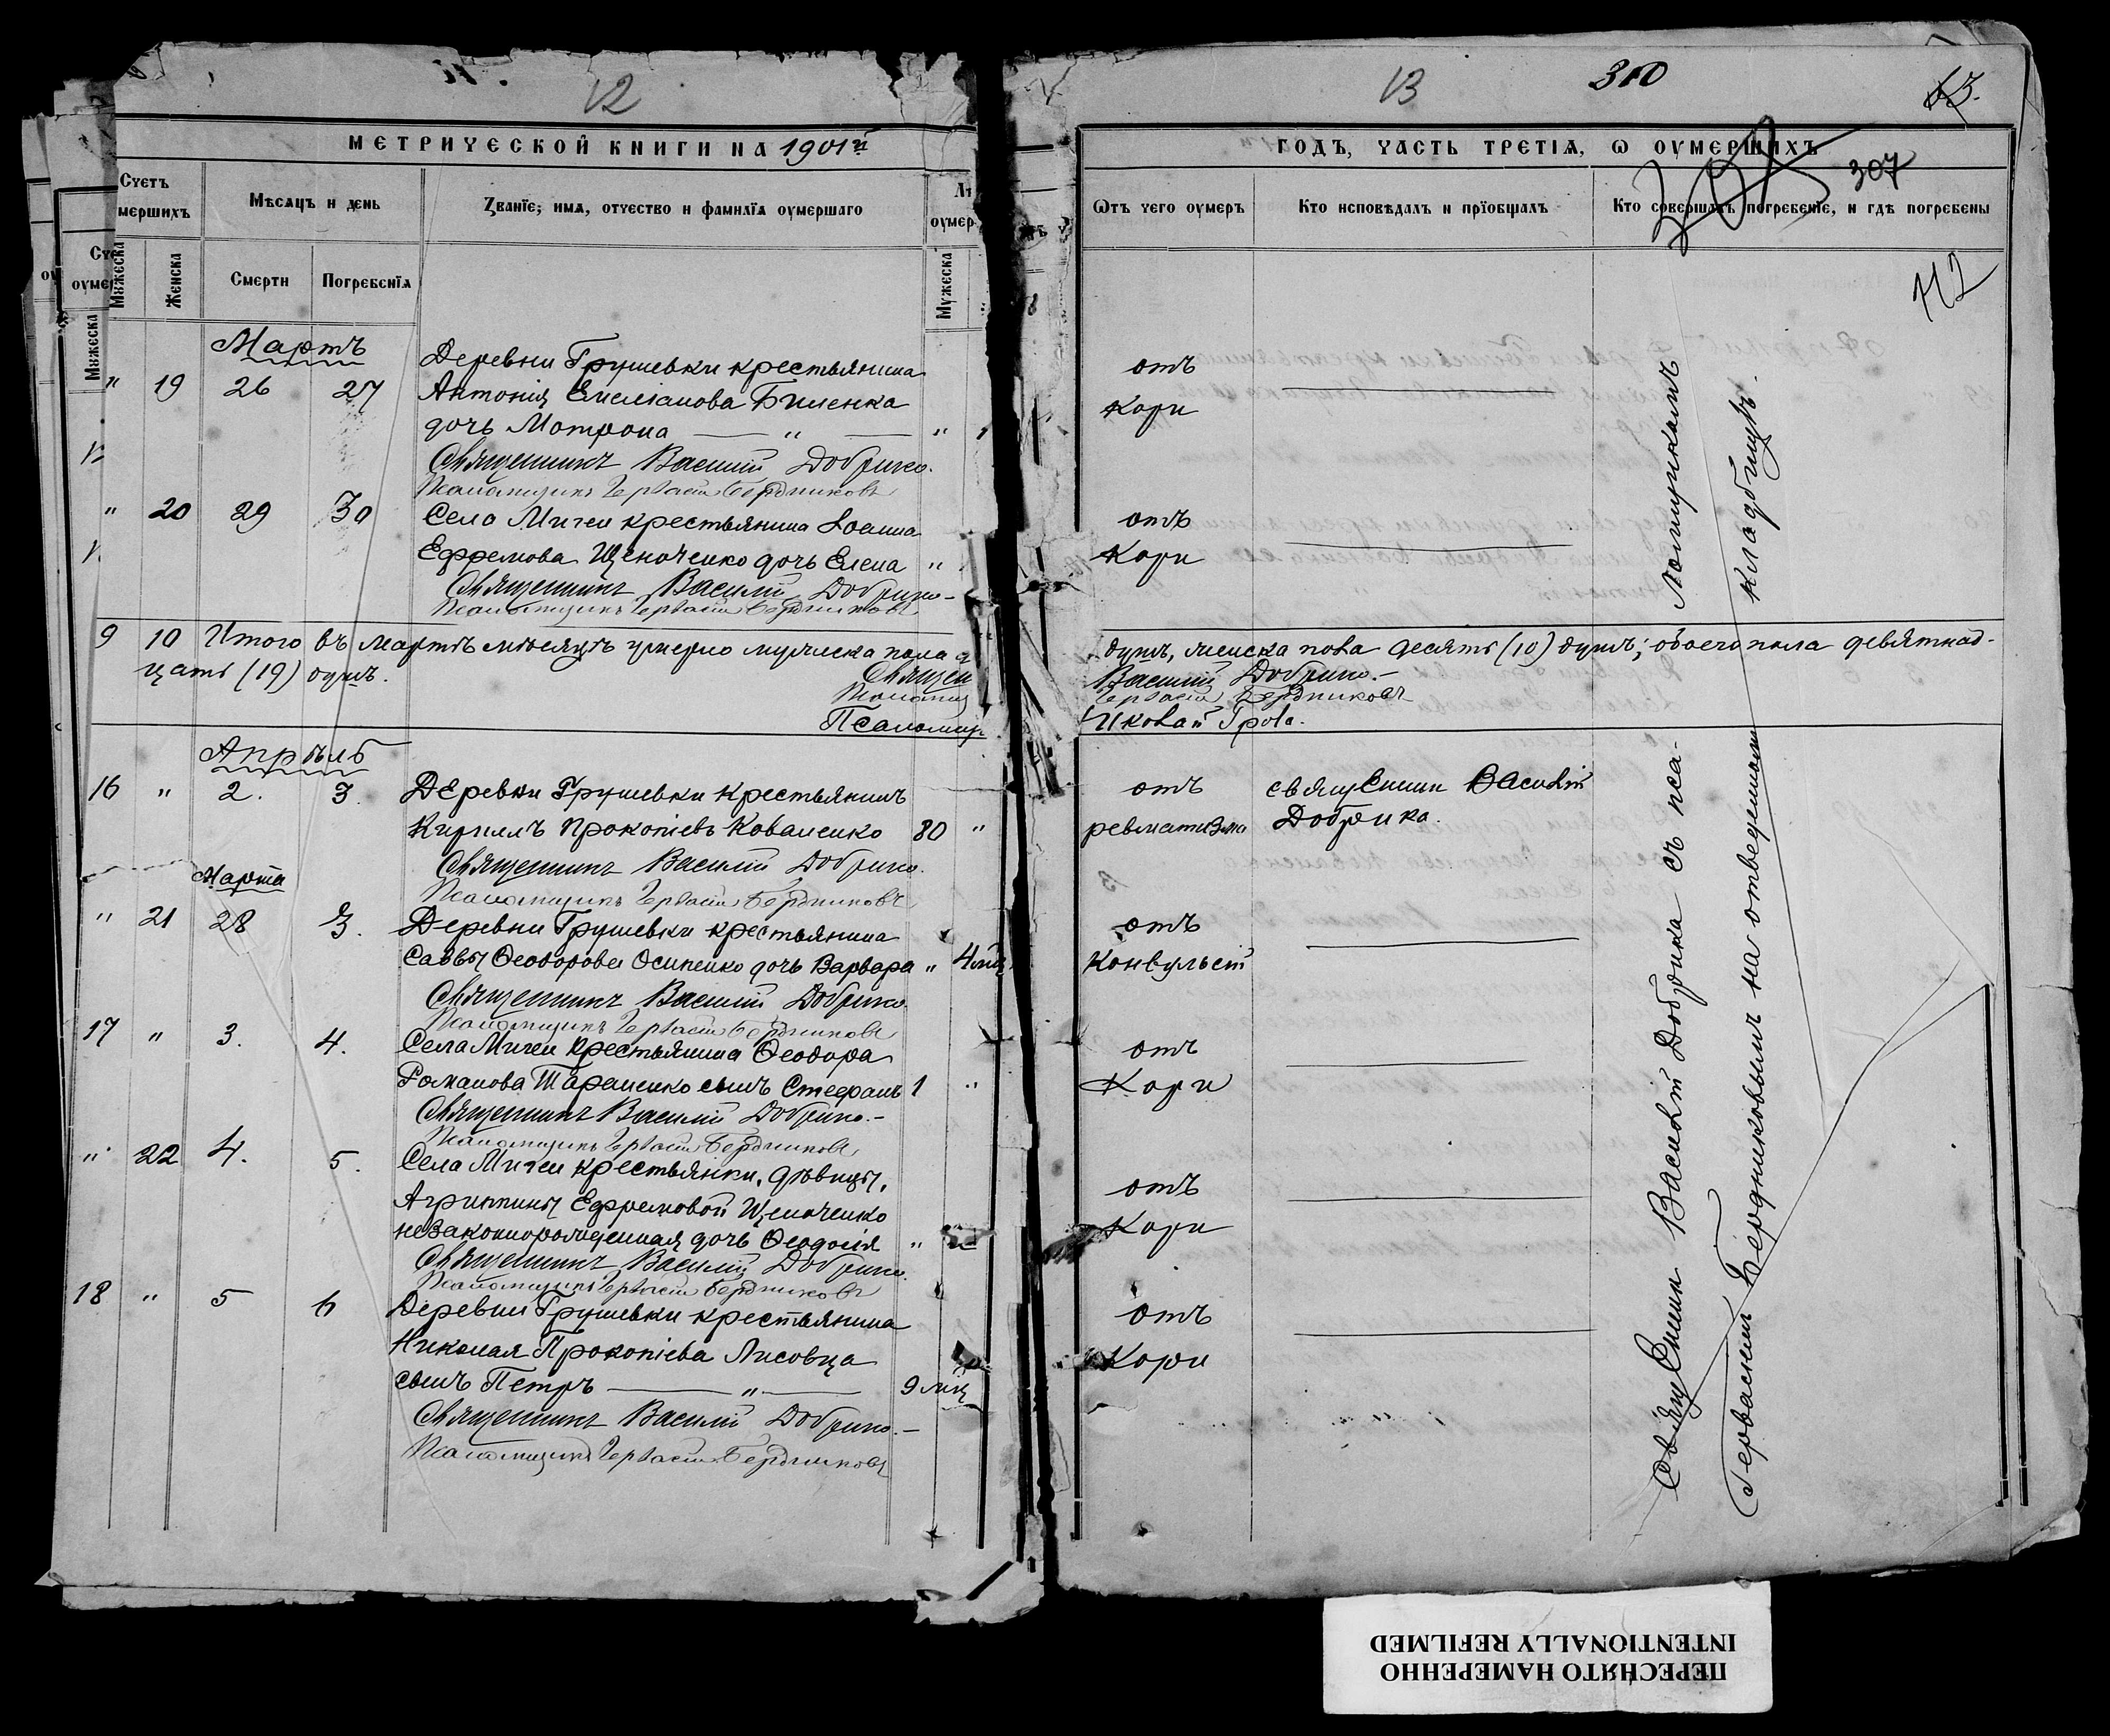 12
МЕТРИЧЕСКОЙ КНИГИ НА 1901й
Счетъ
мершихъ
Мѣсяцъ и день
Званїе, имя, отчество и фамилїя оумершаго
оумер
Мужеска
Женска
Смерти
Погребенїя
Мужеска
Мартъ
" 19 26 27 Деревни Грушевки крестьянина
Антонія Емеліанова Биленка
дочь Мотрона — " — "
Священникъ Василій Добрико.
Псаломщикъ Гервасій Бердниковъ
" 20 29 30 Села Мигеи крестьянина Іоанна
Ефремова Щеноченко дочь Елена "
Священникъ Василій Добрико
Псаломщикъ Гервасій Бердниковъ
9 10 Итого въ мартѣ мѣсяцѣ умерло мужеска пола
цать (19) душъ.
Священ
Псаломщ
Псаломщ
Апрѣль
16 " 2. 3. Деревни Грушевки крестьянинъ
Кириллъ Прокопіевъ Коваленко 80 "
Священникъ Василій Добрико.
Марта
Псаломщикъ Гервасій Бердниковъ
" 21 28 3. Деревни Грушевки крестьянина
Саввы Ѳеодорова Осипенко дочь Варвара " 4 мц
Священникъ Василій Добрико.
Псаломщикъ Гервасій Бердниковъ
17 " 3. 4. Села Мигеи крестьянина Ѳеодора
Романова Тараненко сынъ Стефанъ 1 "
Священникъ Василій Добрико.
Псаломщикъ Гервасій Бердниковъ
" 22 4. 5. Села Мигеи крестьянки, дѣвицы,
Агриппины Ефремовой Щеноченко
незаконнорожденная дочь Ѳеодосія "
Священникъ Василій Добрико.
Псаломщикъ Гервасій Бердниковъ
18 " 5 6 Деревни Грушевки крестьянина
Николая Прокопіева Лисовца
сынъ Петръ — " — 9 мц
Священникъ Василій Добрико.
Псаломщикъ Гервасій Бердниковъ
13
310
307
112
ГОДЪ, ЧАСТЬ ТРЕТІЯ, Ѡ ОУМЕРШИХЪ
Ѿтъ чего оумеръ
Кто исповѣдалъ и прїобщалъ
Кто совершалъ погребенїе, и гдѣ погребены
отъ
Кори
отъ
Кори
душъ, женска пола десять (10) душъ; обоего пола девятнад-
Василій Добрико.
Гервасій Бердниковъ
отъ священник Василій
ревматизма Добрика.
отъ
Конвульсій
отъ
Кори
отъ
Кори
отъ
Кори
Священник Василій Добрика съ псаломщикомъ
Гервасіемъ Бердниковымъ на отведенномъ кладбищѣ.
ПЕРЕСНЯТО НАМЕРЕННО
INTENTIONALLY REFILMED